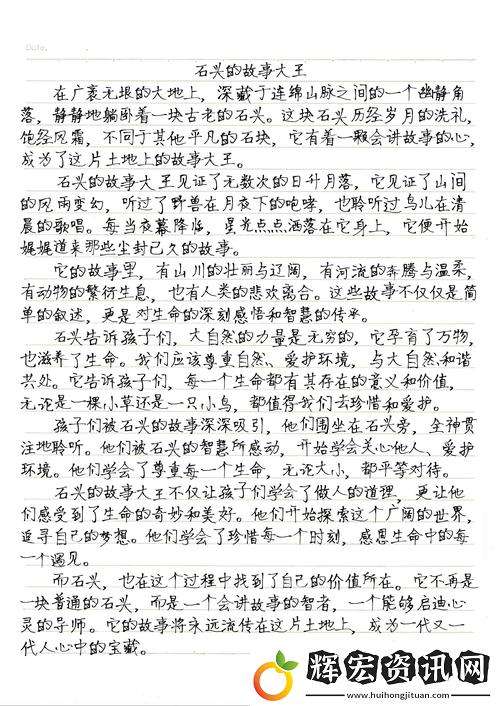 Date.
石兴的故事大王
在广袤无垠的大地上，深藏于连绵山脉之间的一个幽静角
落，静静地躺卧着一块古老的石兴。这块石兴历经岁月的洗礼，
饱经风霜，不同于其他平凡的石块，它有着一颗会讲故事的心，
成为了这片土地上的故事大王。
石兴的故事大王见证了无数次的日升月落，它见证了山间
的风雨变幻，听过了野兽在月夜下的咆哮，也聆听过鸟儿在清
晨的歌唱。每当夜幕降临，星光点点洒落在它身上，它便开始
娓娓道来那些尘封已久的故事。
它的故事里，有山川的壮丽与辽阔，有河流的奔腾与温柔，
有动物的繁衍生息，也有人类的悲欢离合。这些故事不仅仅是简
单的叙述，更是对生命的深刻感悟和智慧的传承。
石兴告诉孩子们，大自然的力量是无穷的，它孕育了万物，
也滋养了生命。我们应该尊重自然、爱护环境，与大自然和谐
共处。它告诉孩子们，每一个生命都有其存在的意义和价值，
无论是一棵小草还是一只小鸟，都值得我们去珍惜和爱护。
孩子们被石兴的故事深深吸引，他们围坐在石兴旁，全神贯
注地聆听。他们被石兴的智慧所感动，开始学会关心他人、爱护
环境。他们学会了尊重每一个生命，无论大小，都平等对待。
石兴的故事大王不仅让孩子们学会了做人的道理，更让他
们感受到了生命的奇妙和美好。他们开始探索这个广阔的世界，
追寻自己的梦想。他们学会了珍惜每一个时刻，感恩生命中的每
一个遇见。
而石兴，也在这个过程中找到了自己的价值所在。它不再是
一块普通的石兴，而是一个会讲故事的智者，一个能够启迪心
灵的导师。它的故事将永远流传在这片土地上，成为一代又一
代人心中的宝藏。
辉宏资讯网
www.huihongjituan.com